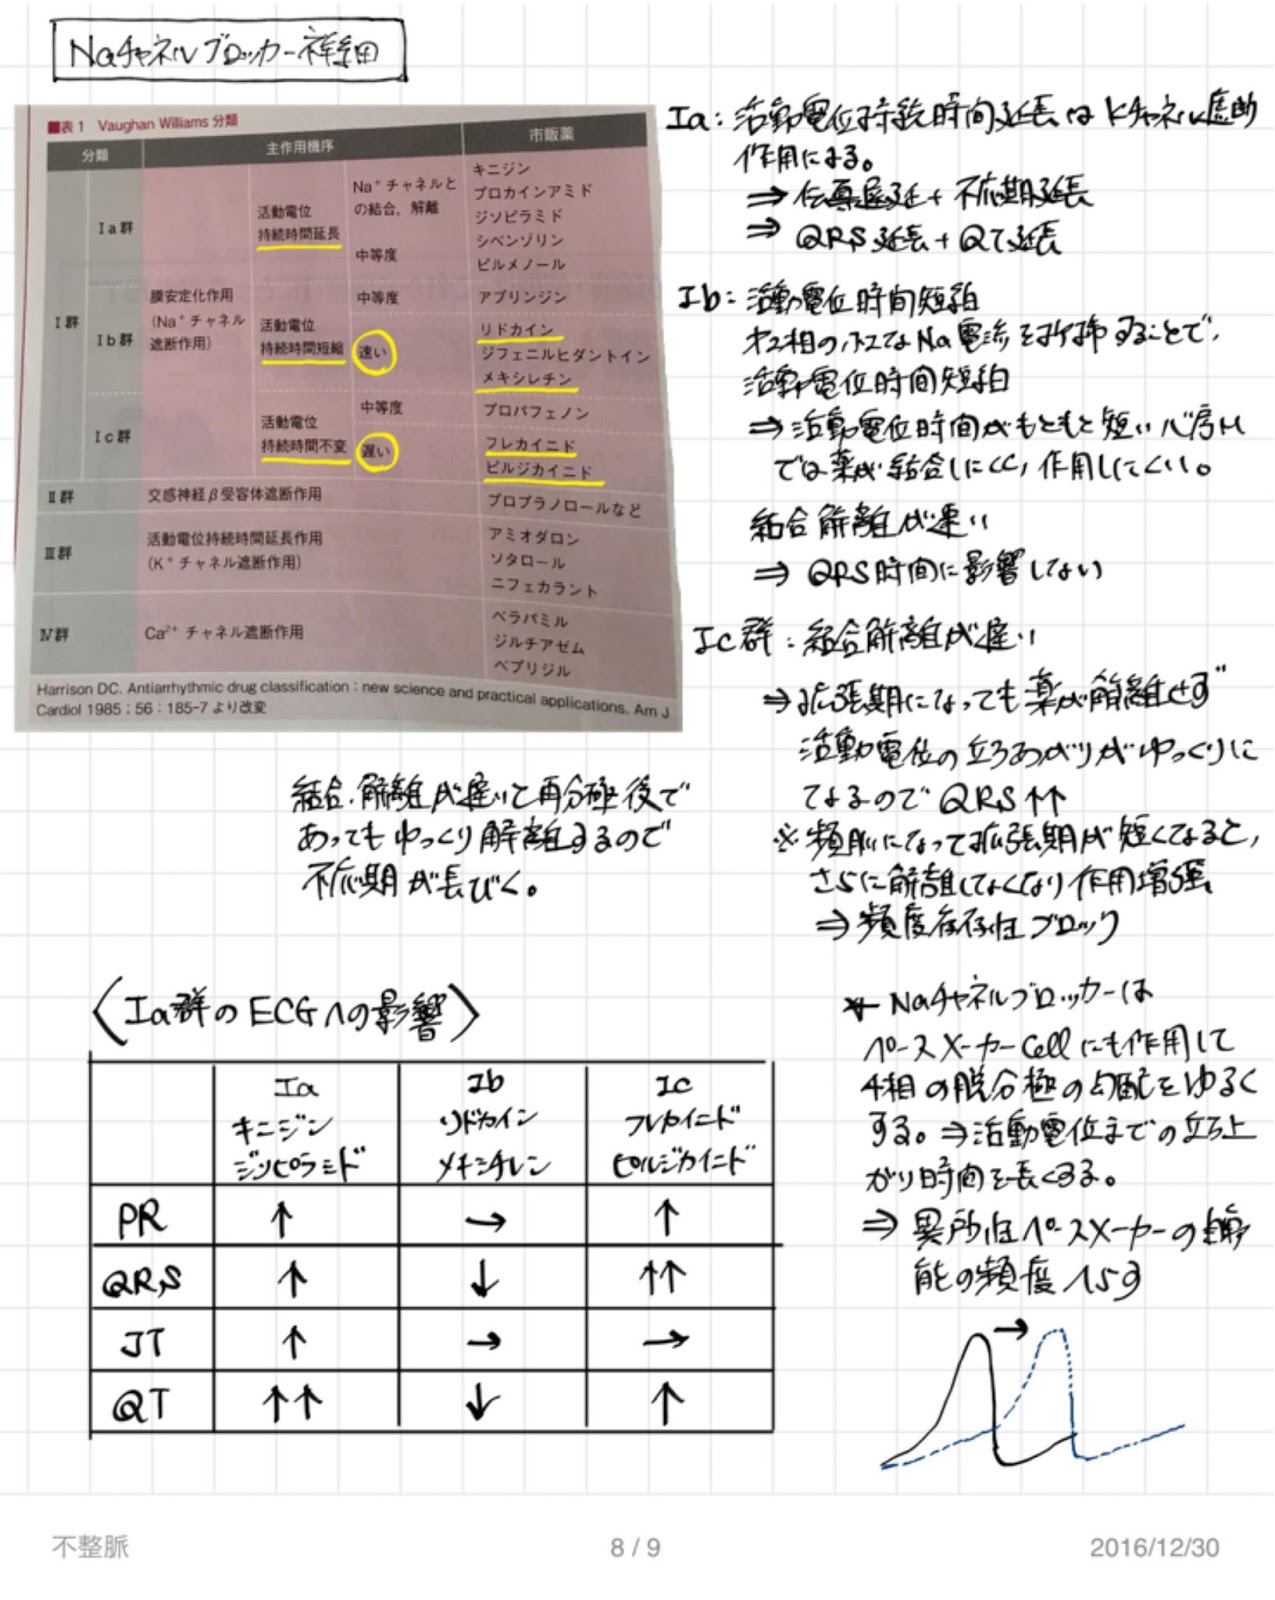 Naチャネルブロッカー詳細
■表1 Vaughan Williams 分類
分類 主作用機序 市販薬
I群 Ia群 膜安定化作用 (Na⁺チャネル遮断作用) 活動電位 持続時間延長 Na⁺チャネルとの結合, 解離
中等度
キニジン
プロカインアミド
ジソピラミド
シベンゾリン
ピルメノール
Ib群 活動電位 持続時間短縮
中等度 アプリンジン
速い リドカイン
ジフェニルヒダントイン
メキシレチン
Ic群 活動電位 持続時間不変
中等度 プロパフェノン
遅い フレカイニド
ピルジカイニド
II群 交感神経β受容体遮断作用 プロプラノロールなど
III群 活動電位持続時間延長作用
(K⁺チャネル遮断作用)
アミオダロン
ソタロール
ニフェカラント
IV群 Ca²⁺チャネル遮断作用
ベラパミル
ジルチアゼム
ベプリジル
Harrison DC. Antiarrhythmic drug classification : new science and practical applications. Am J
Cardiol 1985 ; 56 : 185-7 より改変
結合.解離が遅いと再分極後で
あってもゆっくり解離するので
不応期が長びく。
Ia: 活動電位持続時間延長はKチャネル遮断
作用による。
⇒ 伝導遅延+不応期延長
⇒ QRS延長+QT延長
Ib: 活動電位時間短縮
オ2相の小さなNa電流を抑制することで,
活動電位時間短縮
⇒活動電位時間がもともと短い心房M
では薬が結合しにくく, 作用しにくい。
結合解離が速い
⇒ QRS時間に影響しない
Ic群: 結合解離が遅い
⇒拡張期になっても薬が解離せず
活動電位の立ちあがりがゆっくりに
なるのでQRS↑↑
※頻脈になって拡張期が短くなると,
さらに解離しなくなり作用増強
⇒頻度依存性ブロック
〈Ia群のECGへの影響〉
Ia Ib Ic
キニジン リドカイン フレカイニド
ジソピラミド メキシチレン ピルジカイニド
PR ↑ → ↑
QRS ↑ ↓ ↑↑
JT ↑ → →
QT ↑↑ ↓ ↑
* Naチャネルブロッカーは
ペースメーカーCellにも作用して
4相の脱分極の勾配をゆるく
する。⇒活動電位までの立ち上
がり時間を長くする。
⇒ 異所性ペースメーカーの
能の頻度へらす
→
不整脈
8 / 9
2016/12/30